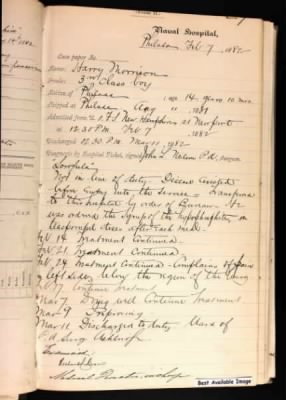 Naval Hospital,
Philada Feb 7, 1882
Case paper No.
Name: Harry Morrison
Grade: 3rd Class boy
Native of Philada age 14 years 10 mos.
Shipped at Philada Aug " " 1881
Admitted from U.S.F.S New Hampshire at Newport
at 12.30 P.M. Feb 7 1882
Discharged 12.30 P.M. Mar 11 1882
Diagnosis by Hospital Ticket, signed John C Nelson P.A. Surgeon.
Scrofula
Not in line of duty. Disease existed
before Entry into the service &
to this hospital by order of Bureau. He
was ordered the Syrup of the Hypophosphites
teaspoonful after each meal.
Feb 14 Treatment Continued.
Feb 21 Treatment Continued.
Feb 24 Treatment Continued. Complains of pain
left side below the region of the
Continue treatment
Mar 7 Doing well Continue treatment
Mar 9 Improving
Mar 11 Discharged to duty
P.A. Surg
Examined
Medical Director in charge
Best Available Image